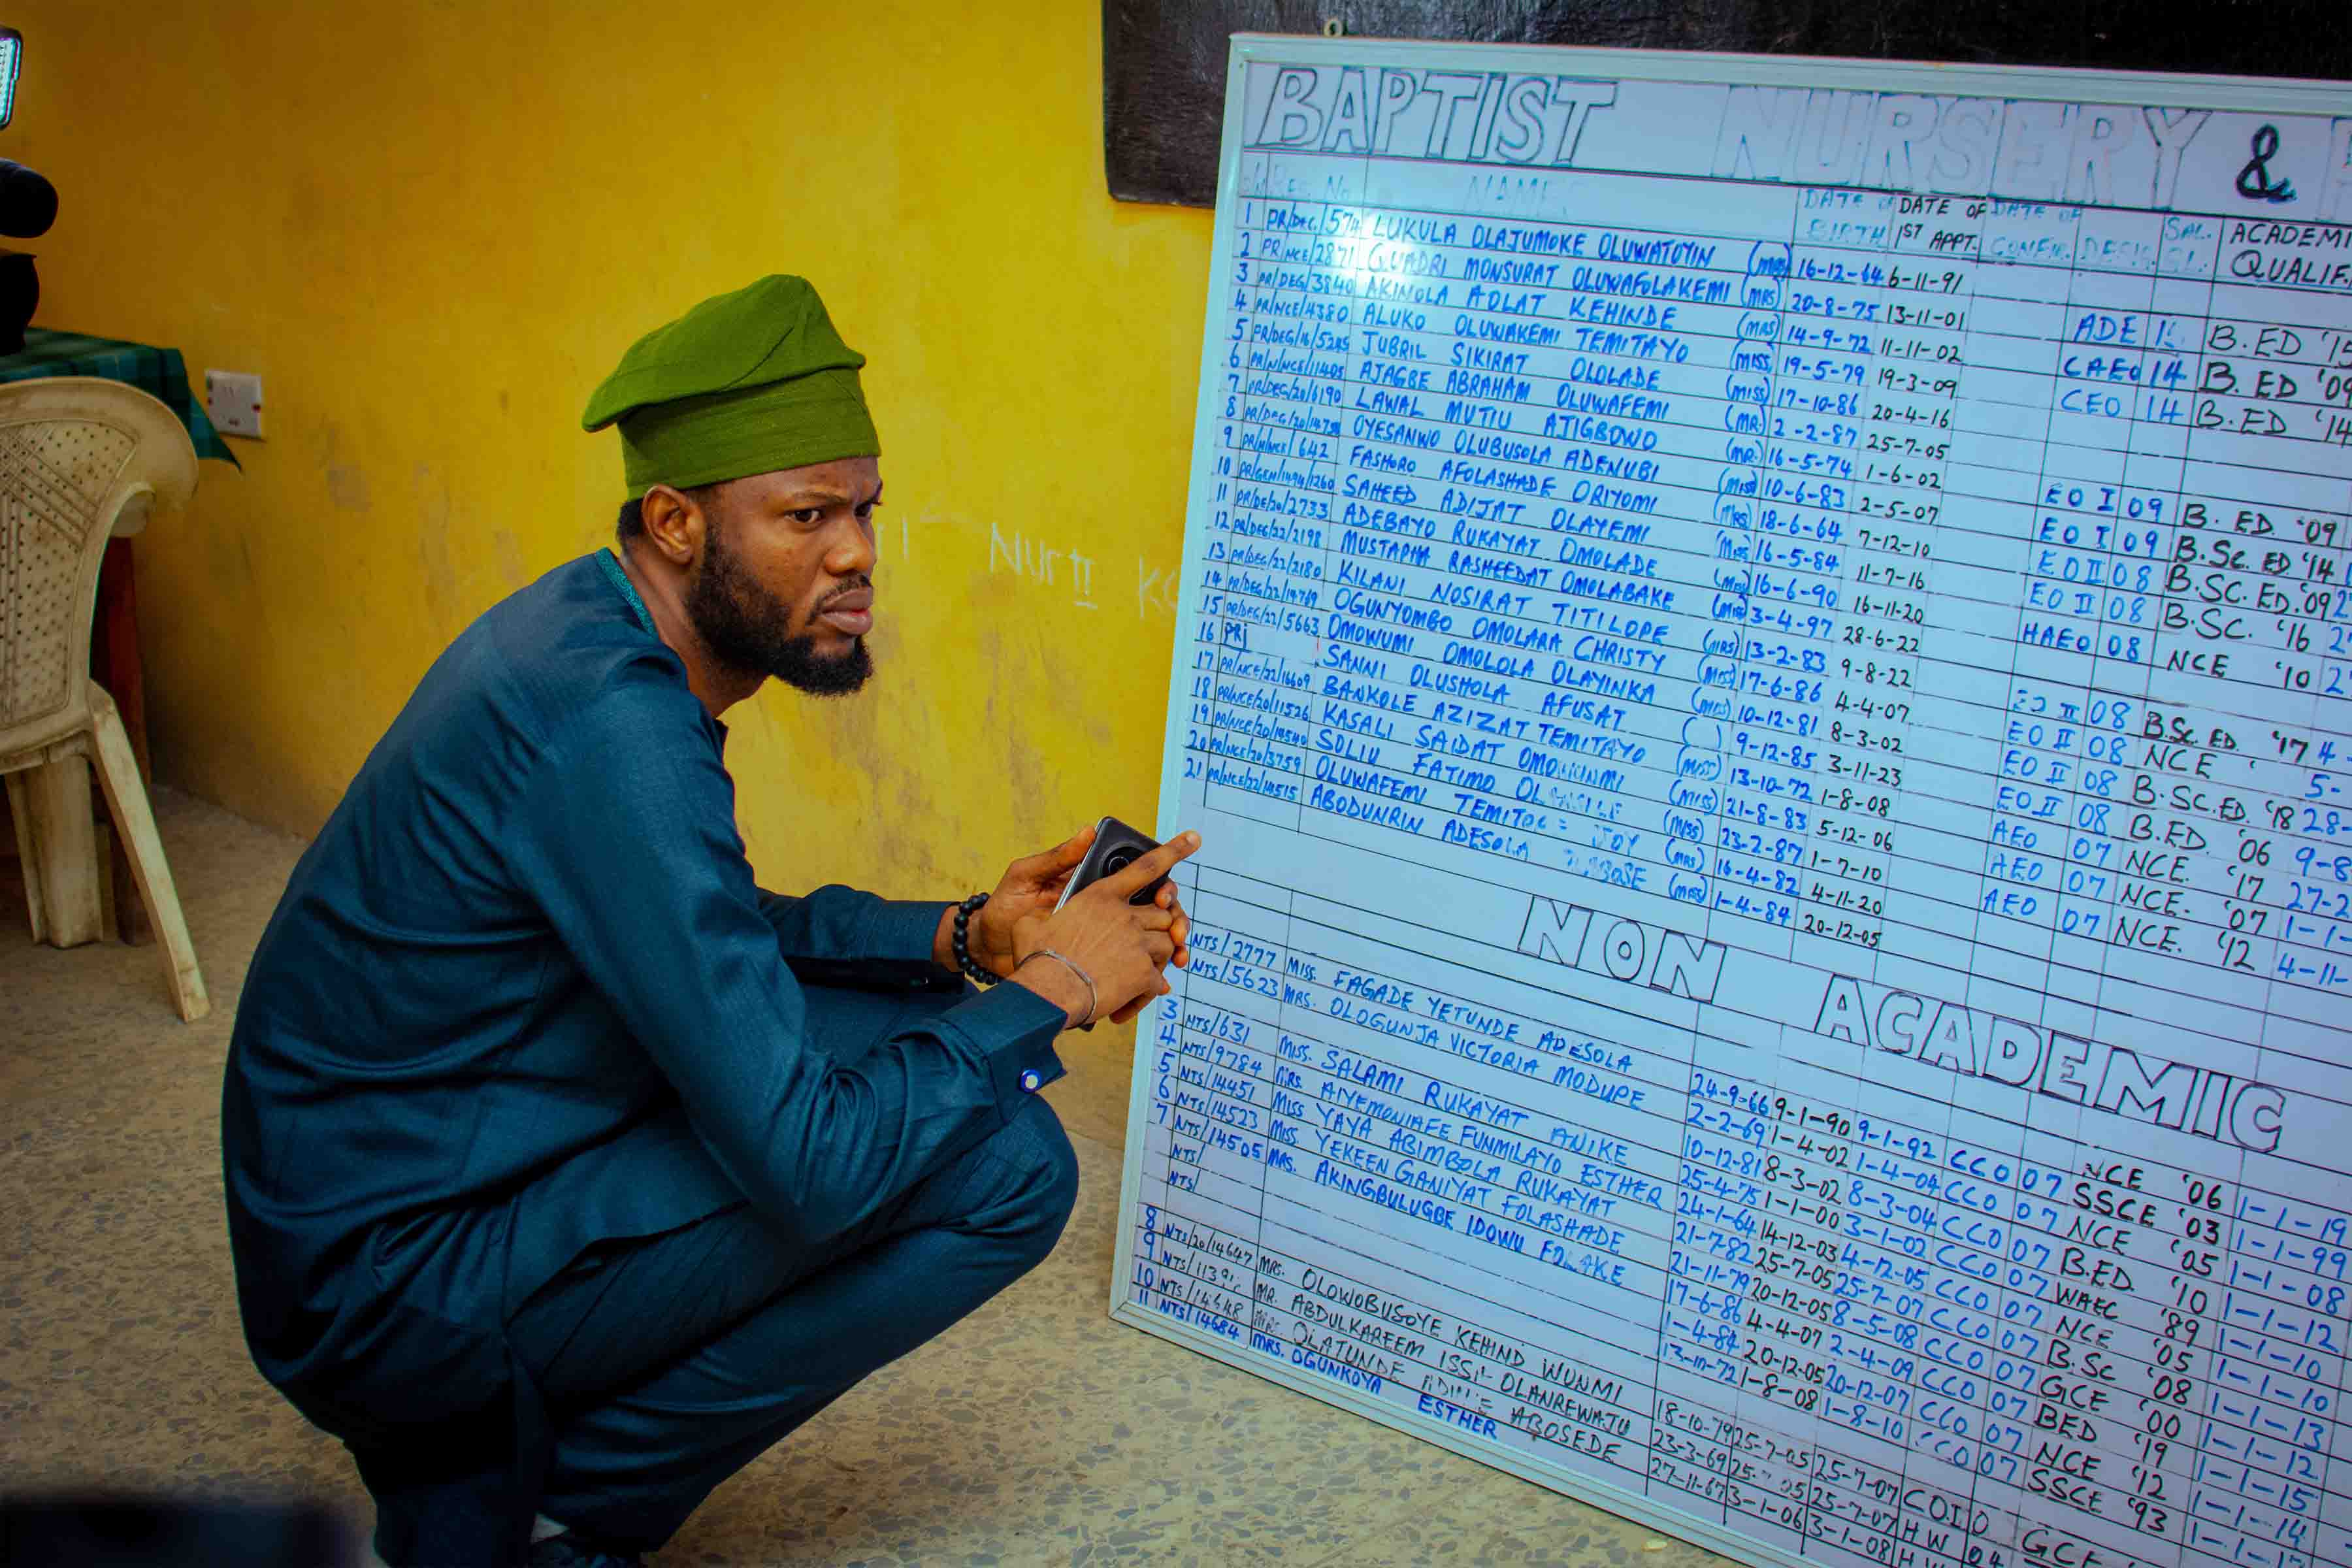 BAPTIST NURSERY &
NAME DATE OF BIRTH DATE OF 1ST APPT. DATE OF CONFIR. DESIG. SAL. ACADEMI QUALIF.
1 PR/DEG./574 LUKULA OLAJUMOKE OLUWATOYIN (MRS) 16-12-64 6-11-91
2 PR/NCE/2871 QUADRI MONSURAT OLUWAFOLAKEMI (MRS) 20-8-75 13-11-01 ADE B.ED
3 PR/DEG/3840 AKINOLA AOLAT KEHINDE (MRS) 14-9-72 11-11-02 CAEO 14 B.ED '09
4 PR/NCE/4380 ALUKO OLUWAKEMI TEMITAYO (MISS) 19-5-79 19-3-09 CEO 14 B.ED '14
5 PR/DEG/16/5285 JUBRIL SIKIRAT OLOLADE (MISS) 17-10-86 20-4-16
6 PR/N/NCE/11405 AJAGBE ABRAHAM OLUWAFEMI (MR.) 2-2-87 25-7-05
7 PR/DEG/20/6190 LAWAL MUTIU AJIGBOWO (MR.) 16-5-74 1-6-02 EO I 09 B.ED. '09
8 PR/DEG/20/14758 OYESANWO OLUBUSOLA ADENUBI (MISS) 10-6-83 2-5-07 EO I 09 B.Sc. ED '14
9 PR/N/NCE/642 FASHORO AFOLASHADE ORIYOMI (MRS) 18-6-64 7-12-10 EO II 08 B.SC. ED. '09
10 PR/GEN/1494/1260 SAHEED ADIJAT OLAYEMI (MISS) 16-5-84 11-7-16 EO II 08 B.SC. '16
11 PR/DE/20/2733 ADEBAYO RUKAYAT OMOLADE (MRS) 16-6-90 16-11-20 HAEO 08 NCE '10
12 PR/DEG/22/2198 MUSTAPHA RASHEEDAT OMOLABAKE (MRS) 3-4-97 28-6-22
13 PR/DEG/22/2180 KILANI NOSIRAT TITILOPE (MRS) 13-2-83 9-8-22 EO II 08 B.Sc. ED. '17
14 PR/DEG/22/14769 OGUNYOMBO OMOLARA CHRISTY (MISS) 17-6-86 4-4-07 EO II 08 NCE
15 PR/DEG/22/5663 OMOWUMI OMOLOLA OLAYINKA (MRS) 10-12-81 8-3-02 EO II 08 B.SC.ED. '18
16 PR/ SANNI OLUSHOLA AFUSAT ( ) 9-12-85 3-11-23 EO II 08 B.ED. '06
17 PR/NCE/22/16609 BANKOLE AZIZAT TEMITAYO (MISS) 13-10-72 1-8-08 AEO 07 NCE. '17
18 PR/NCE/20/11526 KASALI SAIDAT (MISS) 21-8-83 5-12-06 AEO 07 NCE. '07
19 PR/NCE/20/14540 SOLIU FATIMO (MISS) 23-2-87 1-7-10 AEO 07 NCE. '12
20 PR/NCE/20/3759 OLUWAFEMI TEMITOPE JOY (MRS) 16-4-82 4-11-20
21 PR/NCE/22/14515 ABODUNRIN ADESOLA (MRS) 1-4-84 20-12-05
NON ACADEMIC
NTS/2777 MISS. FAGADE YETUNDE ADESOLA 24-9-66 9-1-90 9-1-92 CCO 07 NCE '06 1-1-19
NTS/5623 MRS. OLOGUNJA VICTORIA MODUPE 2-2-69 1-4-02 1-4-04 CCO 07 SSCE '03 1-1-99
3 NTS/631 MISS. SALAMI RUKAYAT ANIKE 10-12-81 8-3-02 8-3-04 CCO 07 NCE '05 1-1-08
4 NTS/9784 MRS. AIYEMONIAFE FUNMILAYO ESTHER 25-4-75 1-1-00 3-1-02 CCO 07 B.ED. '10 1-1-12
5 NTS/14451 MISS YAYA ABIMBOLA RUKAYAT 24-1-64 14-12-03 4-12-05 CCO 07 WAEC '89 1-1-10
6 NTS/14523 MISS. YEKEEN GANIYAT FOLASHADE 21-7-82 25-7-05 25-7-07 CCO 07 NCE '05 1-1-10
7 NTS/14505 MRS. AKINGBULUGBE IDOWU FOLAKE 21-11-79 20-12-05 8-5-08 CCO 07 B.Sc '08 1-1-13
NTS/ 17-6-86 4-4-07 2-4-09 CCO 07 GCE '00 1-1-12
NTS/ 1-4-84 20-12-05 20-12-07 CCO 07 BED '19 1-1-15
13-10-72 1-8-08 1-8-10 CCO 07 NCE '12 1-1-14
SSCE '93
8 NTS/20/14647 MRS. OLOWOBUSOYE KEHIND WUNMI 18-10-79 25-7-05 25-7-07 C.O.I
9 NTS/ MR. ABDULKAREEM OLANREWAJU 23-3-69 25-7-05 25-7-07 HW 04 GCE
10 NTS/14648 MRS. OLATUNDE ABOSEDE 27-11-67 3-1-06 3-1-08 HW
11 NTS/14684 MRS. OGUNKOYA ESTHER
Nur II KG